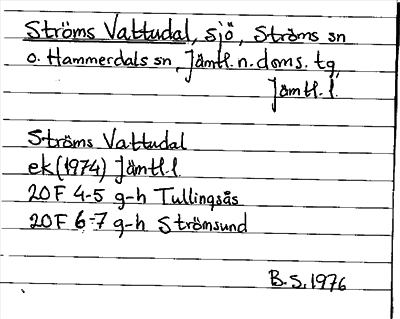 Ströms Vattudal, sjö, Ströms sn
o. Hammerdals sn, Jämtl. n. doms. tg,
Jämtl. l.
Ströms Vattudal
ek (1974) Jämtl. l
20F 4-5 g-h Tullingsås
20F 6-7 g-h Strömsund
B.S. 1976